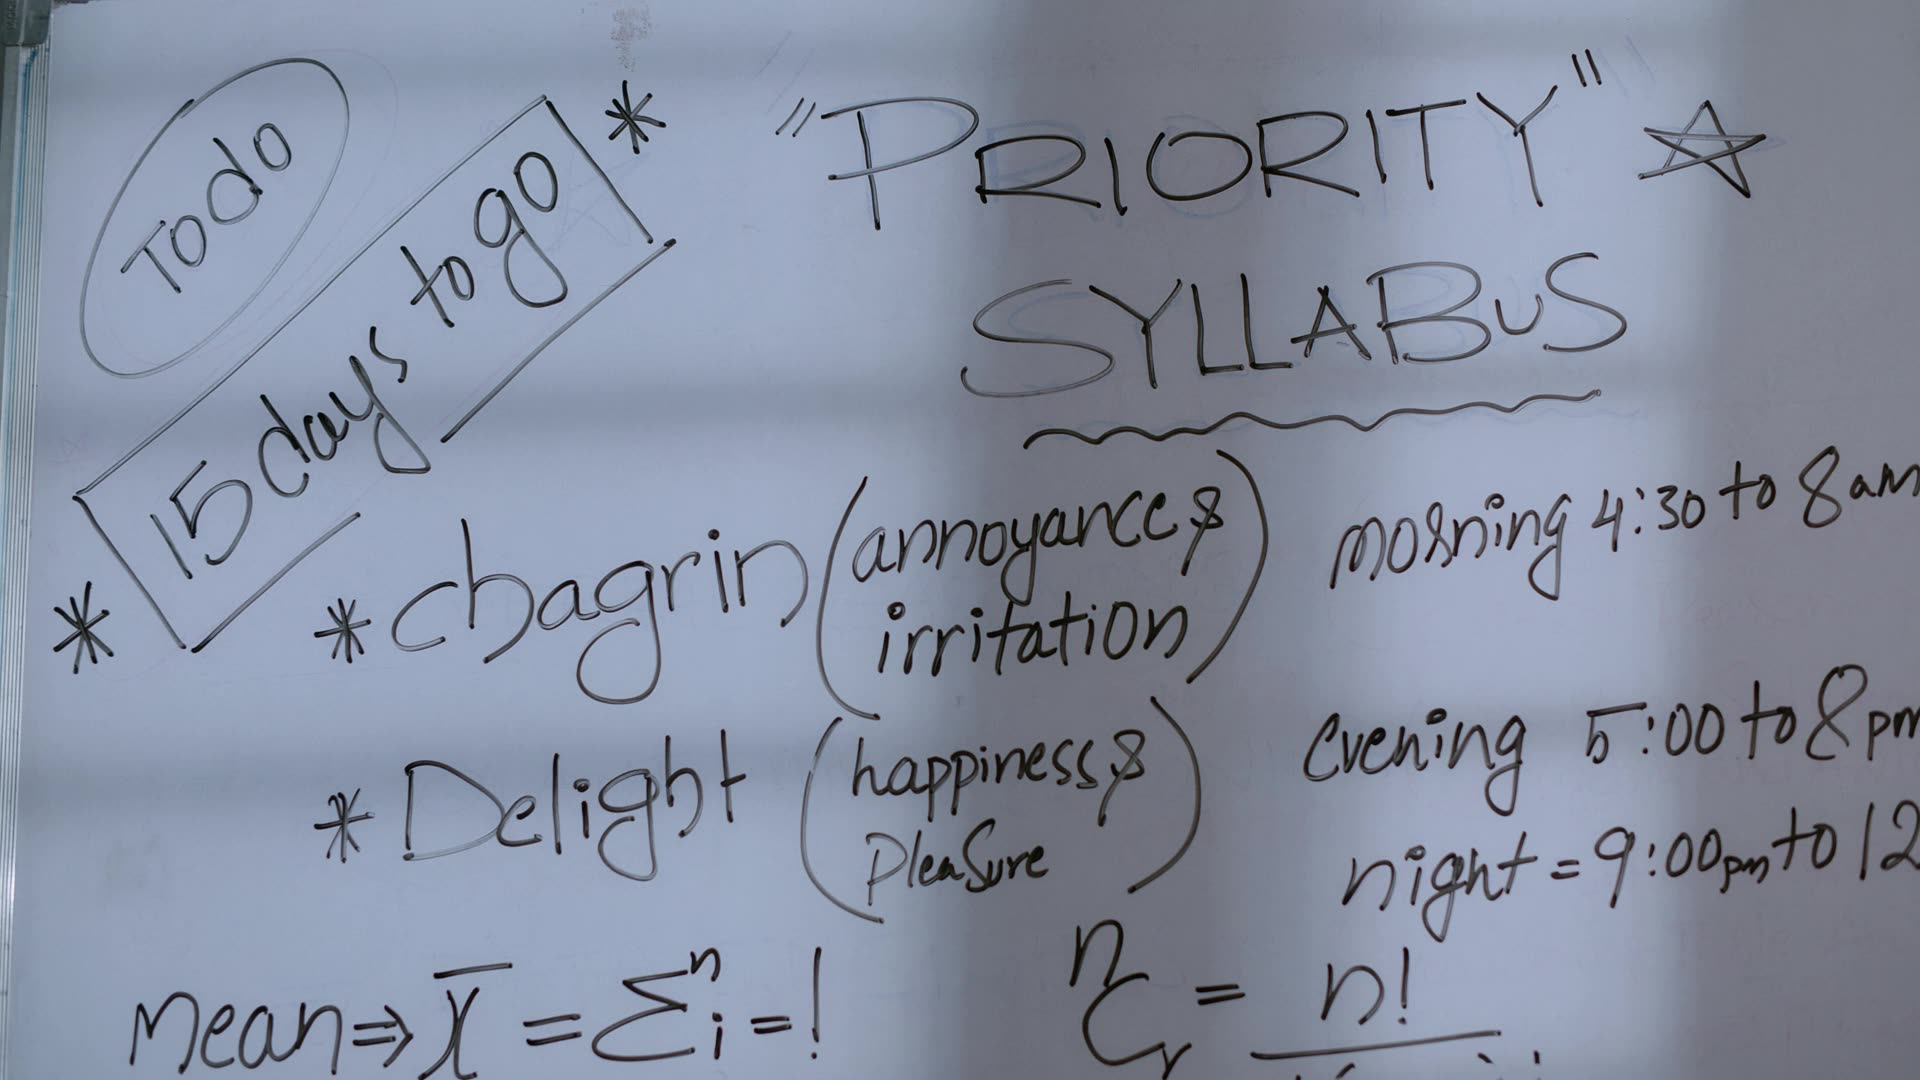 Todo
* 15 days to go *
"PRIORITY" ☆
SYLLABUS
* chagrin (annoyance &
irritation)
morning 4:30 to 8 am
* Delight (happiness &
pleasure)
evening 5:00 to 8 pm
night = 9:00 pm to 12
mean ⇒ x̄ = Σⁿ i = !
ⁿCᵣ = n!